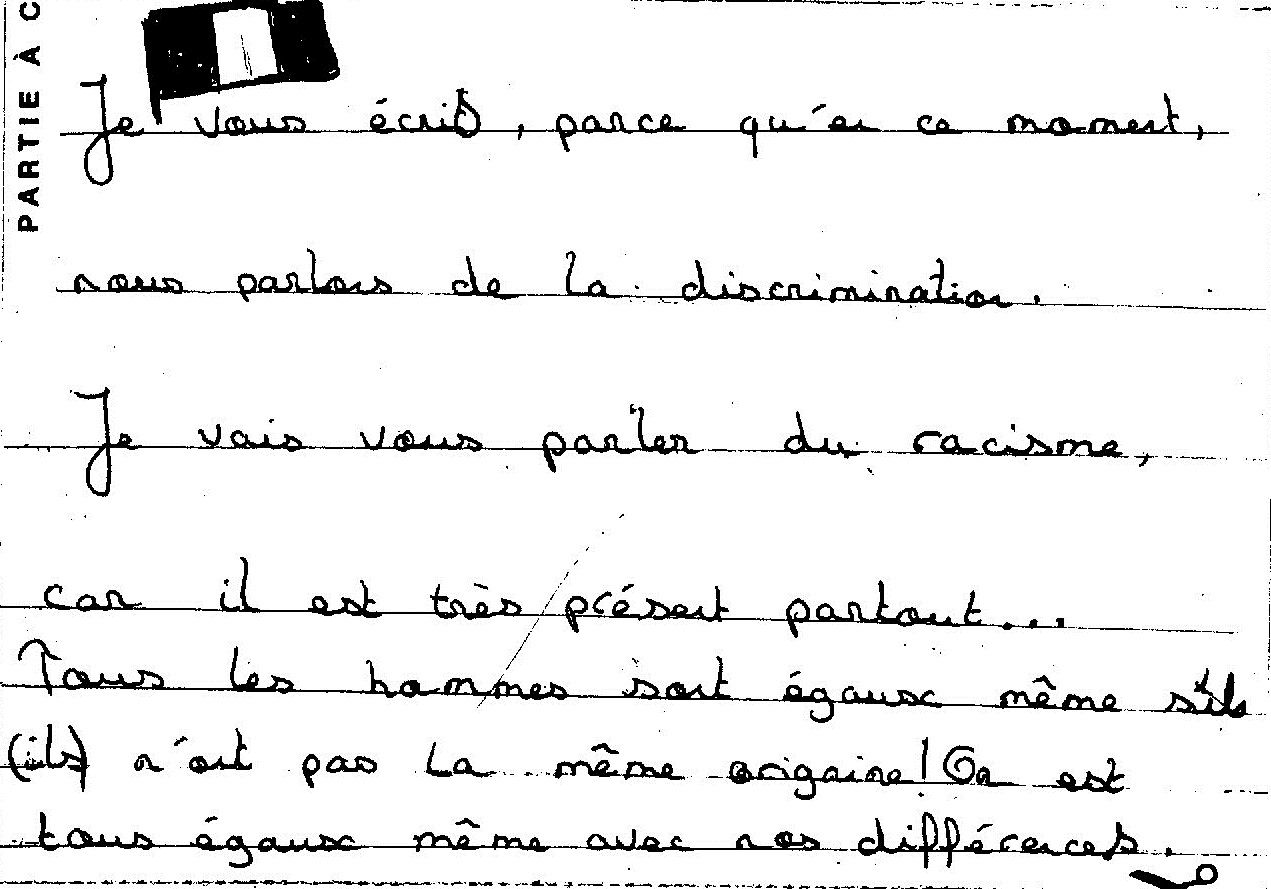 PARTIE À C
Je vous écris, parce qu'en ce moment,
nous parlons de la discrimination.
Je vais vous parler du racisme,
car il est très présent partout...
Tous les hommes sont égaux même s'ils
(ils) n'ont pas la même origaine! On est
tous égaux même avec nos différences.